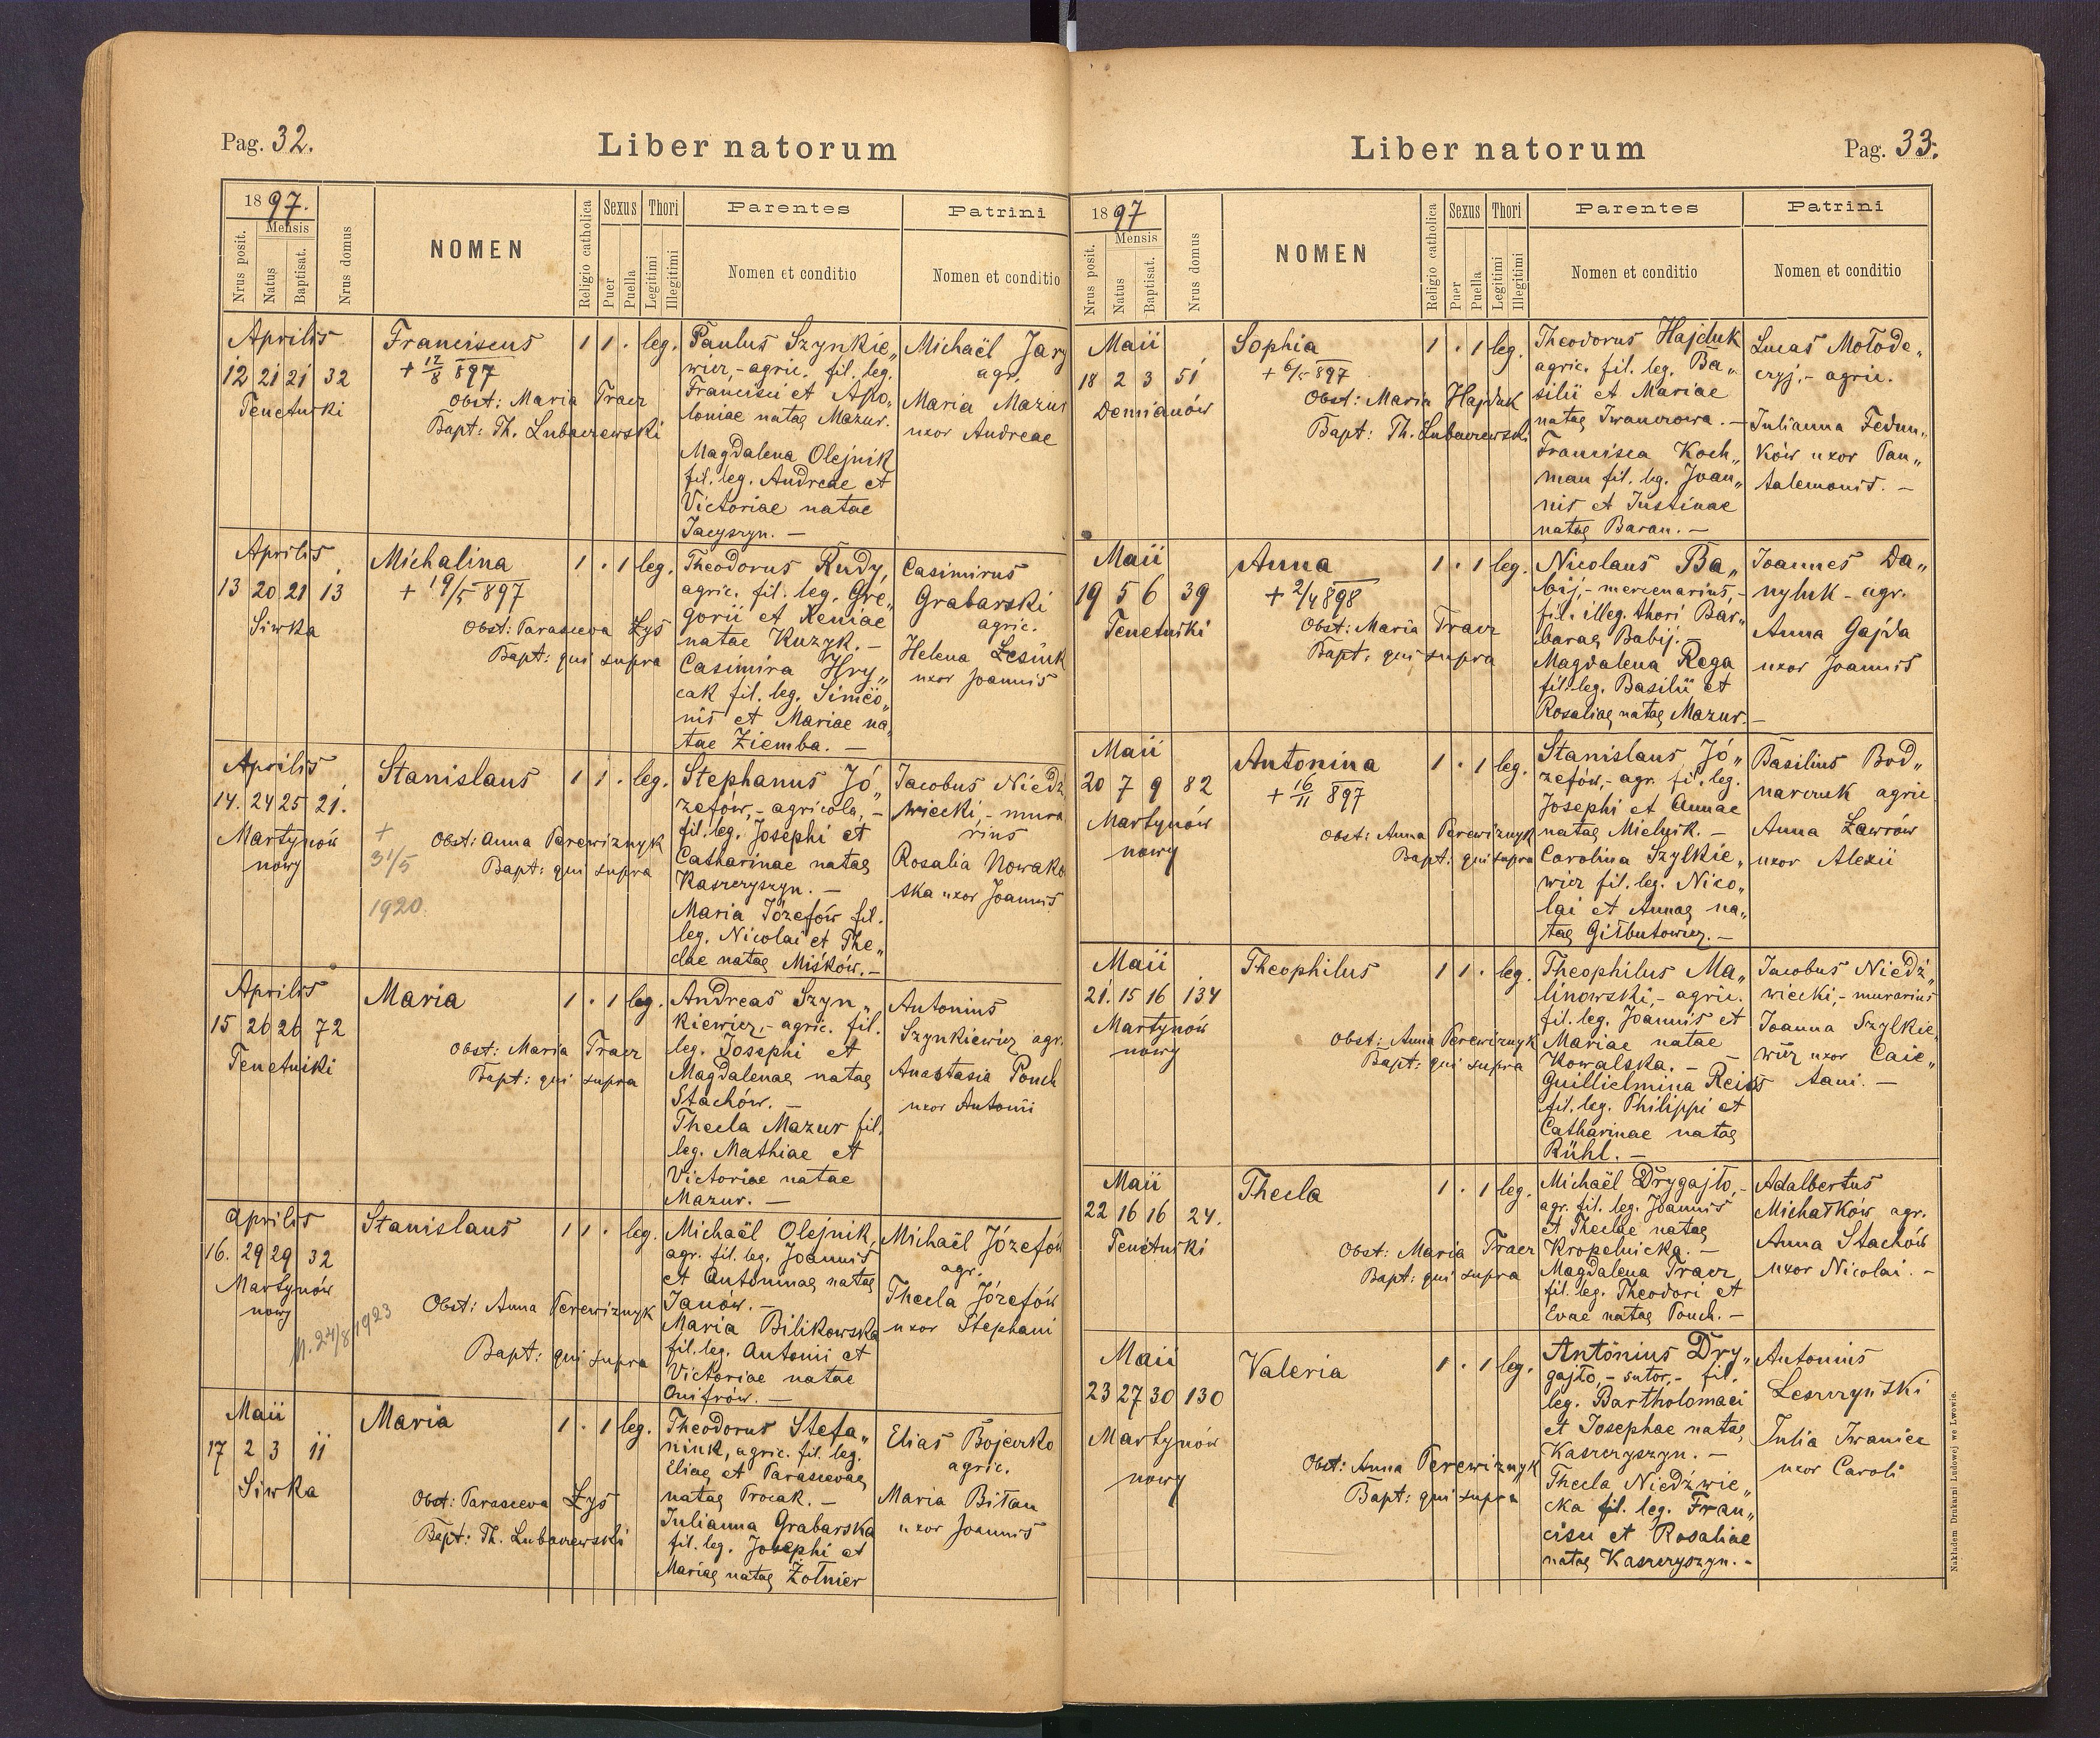 Pag. 32.
Liber natorum
1897.
Nrus posit.
Mensis
Natus
Baptisat.
Nrus domus
NOMEN
Religio catholica
Sexus
Puer
Puella
Thori
Legitimi
Illegitimi
Parentes
Nomen et conditio
Patrini
Nomen et conditio
Aprilis
12 21 21 32
Tenetniki
Franciscus
+ 12/8 897
Obst: Maria Tracz
Bapt: Th. Lubaczewski
1 1 . leg.
Paulus Szynkie„
wicz,- agric. fil. leg.
Francisci et Apo„
loniae natae Mazur.
Magdalena Olejnik
fil. leg. Andreae et
Victoriae natae
Jacyszyn. —
Michaël Jary
agr.
Maria Mazur
uxor Andreae
Aprilis
13 20 21 13
Siwka
Michalina
+ 19/5 897
Obst: Parasceva Łys
Bapt: qui supra
1 . 1 leg.
Theodorus Rudy,
agric. fil. leg. Gre„
gorii et Xeniae
natae Kuzyk. —
Casimira Hry„
cak fil. leg. Simëo„
nis et Mariae na„
tae Ziemba. —
Casimirus
Grabarski
agric.
Helena Lesiuk
uxor Joannis
Aprilis
14. 24 25 21.
Martynów
nowy
Stanislaus
+
31/5
1920
Obst: Anna Perewiznyk
Bapt: qui supra
1 1 . leg.
Stephanus Jó„
zefów,- agricola,-
fil. leg. Josephi et
Catharinae natae
Kaszczyszyn. —
Maria Józefów fil.
leg. Nicolai et The„
clae natae Miśków.—
Jacobus Niedź
wiecki,- mura
rius
Rosalia Nowako
ska uxor Joannis
Aprilis
15 26 26 72
Tenetniki
Maria
Obst: Maria Tracz
Bapt: qui supra
1 . 1 leg.
Andreas Szyn„
kiewicz,- agric. fil.
leg. Josephi et
Magdalenae natae
Stachów. —
Thecla Mazur fil.
leg. Mathiae et
Victoriae natae
Mazur. —
Antonius
Szynkiewicz agr.
Anastasia Pouch
uxor Antonii
Aprilis
16. 29 29 32
Martynów
nowy
Stanislaus
24/8 1923
Obst: Anna Perewiznyk
Bapt: qui supra
1 1 . leg.
Michaël Olejnik,
agr. fil. leg. Joannis
et Antoninae natae
Janów. —
Maria Bilikowska
fil. leg. Antonii et
Victoriae natae
Onifrów. —
Michaël Józefów
agr.
Thecla Józefów
uxor Stephani
Maii
17 2 3 11
Siwka
Maria
Obst: Parasceva Łys
Bapt: Th. Lubaczewski
1 . 1 leg.
Theodorus Stefa„
niuk, agric. fil. leg.
Eliae et Parascevae
natae Procak. —
Julianna Grabarska
fil. leg. Josephi et
Mariae natae Żołnier
Elias Bojeczko
agric.
Maria Biłan
uxor Joannis
Liber natorum
Pag. 33.
1897
Nrus posit.
Mensis
Natus
Baptisat.
Nrus domus
NOMEN
Religio catholica
Sexus
Puer
Puella
Thori
Legitimi
Illegitimi
Parentes
Nomen et conditio
Patrini
Nomen et conditio
Maii
18 2 3 51
Demianów
Sophia
+ 6/5 897
Obst: Maria Hajduk
Bapt: Th. Lubaczewski
1 . 1 leg.
Theodorus Hajduk
agric. fil. leg. Ba„
silii et Mariae
natae Iwanczowa. —
Francisca Koch„
man fil. leg. Joan„
nis et Justinae
natae Baran. —
Lucas Mołode„
czyj,- agric.
Julianna Fedun„
ków uxor Pan„
talemonis. —
Maii
19 5 6 39
Tenetniki
Anna
+ 2/4 898
Obst: Maria Tracz
Bapt: qui supra
1 . 1 leg.
Nicolaus Ba„
bij,- mercenarius,-
fil. illeg. thori Bar„
barae Babij. —
Magdalena Rega
fil. leg. Basilii et
Rosaliae natae Mazur.—
Joannes Da„
nyluk - agr.
Anna Gajda
uxor Joannis
Maii
20 7 9 82
Martynów
nowy
Antonina
+ 16/11 897
Obst: Anna Perewiznyk
Bapt: qui supra
1 . 1 leg.
Stanislaus Jó„
zefów,- agr. fil. leg.
Josephi et Annae
natae Mielnik. —
Carolina Szylkie„
wicz fil. leg. Nico„
lai et Annae na„
tae Giłbutowicz. —
Basilius Bod„
narczuk agric
Anna Ławrów
uxor Alexii
Maii
21. 15 16 134
Martynów
nowy
Theophilus
Obst: Anna Perewiznyk
Bapt: qui supra
1 1 . leg.
Theophilus Ma„
linowski,- agric.
fil. leg. Joannis et
Mariae natae
Kowalska. —
Guillielmina Reiss
fil. leg. Philippi et
Catharinae natae
Rühl. —
Jacobus Niedź„
wiecki,- murarius
Joanna Szylkie„
wicz uxor Caie„
tani. —
Maii
22 16 16 24.
Tenetniki
Thecla
Obst: Maria Tracz
Bapt: qui supra
1 . 1 leg.
Michaël Drygajło,-
agr. fil. leg. Joannis
et Theclae natae
Kropelnicka. —
Magdalena Tracz
fil. leg. Theodori et
Evae natae Pouch. —
Adalbertus
Michałków agr.
Anna Stachów
uxor Nicolai. —
Maii
23 27 30 130
Martynów
nowy
Valeria
Obst: Anna Perewiznyk
Bapt: qui supra
1 . 1 leg.
Antonius Dry„
gajło,- sutor,- fil.
leg. Bartholomaei
et Josephae natae
Kaszczyszyn. —
Thecla Niedźwie„
cka fil. leg. Fran„
cisci et Rosaliae
natae Kaszczyszyn. -
Antonius
Leszczyński
Julia Iwaniec
uxor Caroli
Nakładem Drukarni Ludowej we Lwowie.